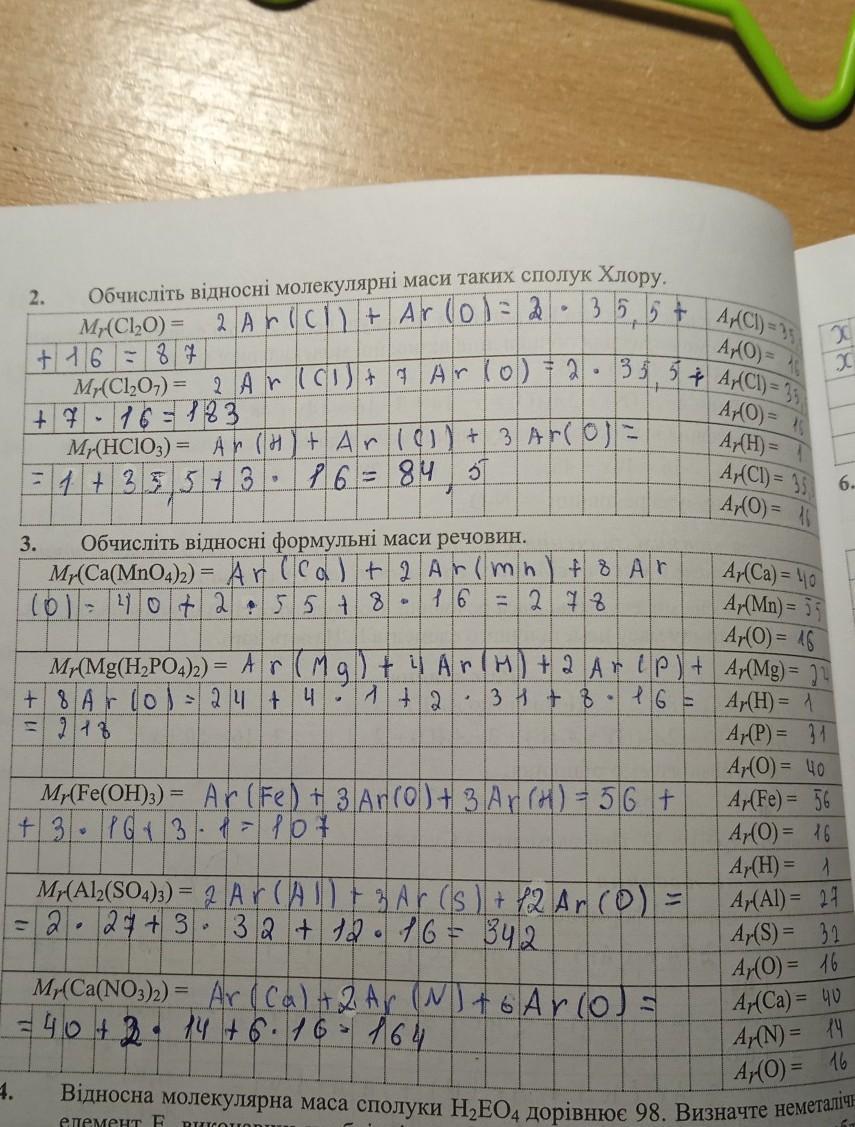 2. Обчисліть відносні молекулярні маси таких сполук Хлору.
Mr(Cl₂O) = 2 Ar(Cl) + Ar(O) = 2 · 35,5 + Ar(Cl) = 35
+ 16 = 87 Ar(O) = 16
Mr(Cl₂O₇) = 2 Ar(Cl) + 7 Ar(O) = 2 · 35,5 + Ar(Cl) = 35,
+ 7 · 16 = 183 Ar(O) = 16
Mr(HClO₃) = Ar(H) + Ar(Cl) + 3 Ar(O) = Ar(H) = 1
= 1 + 35,5 + 3 · 16 = 84,5 Ar(Cl) = 35,
Ar(O) = 16
6.
3. Обчисліть відносні формульні маси речовин.
Mr(Ca(MnO₄)₂) = Ar(Ca) + 2 Ar(mn) + 8 Ar Ar(Ca) = 40
(O) = 40 + 2 · 55 + 8 · 16 = 278 Ar(Mn) = 55
Ar(O) = 16
Mr(Mg(H₂PO₄)₂) = Ar(Mg) + 4 Ar(H) + 2 Ar(P) + Ar(Mg) = 24
+ 8 Ar(O) = 24 + 4 · 1 + 2 · 31 + 8 · 16 = Ar(H) = 1
= 218 Ar(P) = 31
Ar(O) = 40
Mr(Fe(OH)₃) = Ar(Fe) + 3 Ar(O) + 3 Ar(H) = 56 + Ar(Fe) = 56
+ 3 · 16 + 3 · 1 = 107 Ar(O) = 16
Ar(H) = 1
Mr(Al₂(SO₄)₃) = 2 Ar(Al) + 3 Ar(S) + 12 Ar(O) = Ar(Al) = 27
= 2 · 27 + 3 · 32 + 12 · 16 = 342 Ar(S) = 32
Ar(O) = 16
Mr(Ca(NO₃)₂) = Ar(Ca) + 2 Ar(N) + 6 Ar(O) = Ar(Ca) = 40
= 40 + 2 · 14 + 6 · 16 = 164 Ar(N) = 14
Ar(O) = 16
4. Відносна молекулярна маса сполуки H₂EO₄ дорівнює 98. Визначте
елемент Е,